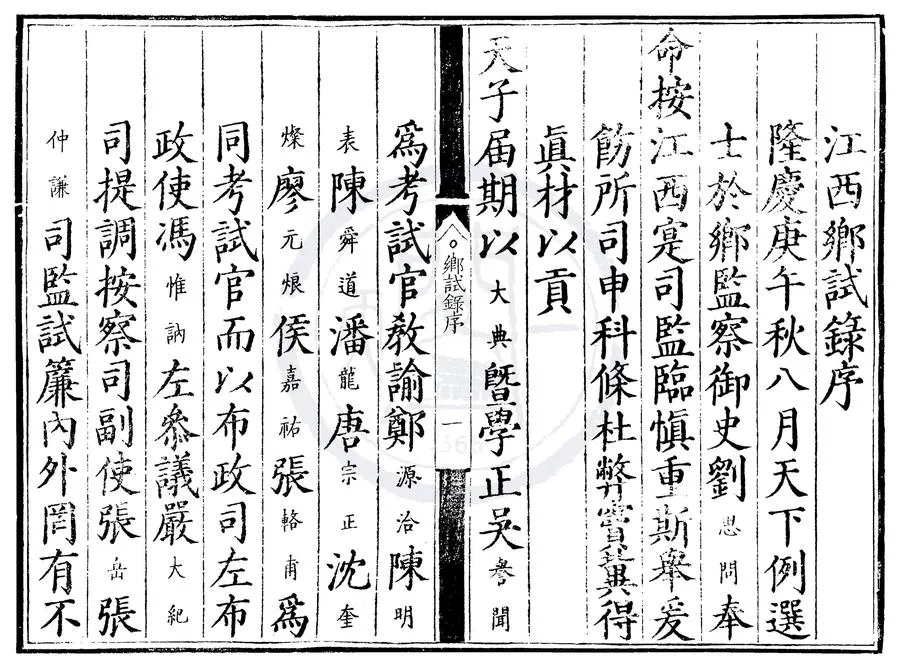 江西鄉試錄序
隆慶庚午秋八月天下例選
士於鄉監察御史劉思問奉
命按江西寔司監臨慎重斯舉爰
飭所司申科條杜弊竇冀得
眞材以貢
天子屆期以大典曁學正吳參聞
鄉試錄序 一
爲考試官敎諭鄭源洽陳明
表陳舜道潘龍唐宗正沈奎
燦廖元烺侯嘉祐張輅甫爲
同考試官而以布政司左布
政使馮惟訥左叅議嚴大紀
司提調按察司副使張岳張
仲謙司監試簾內外罔有不